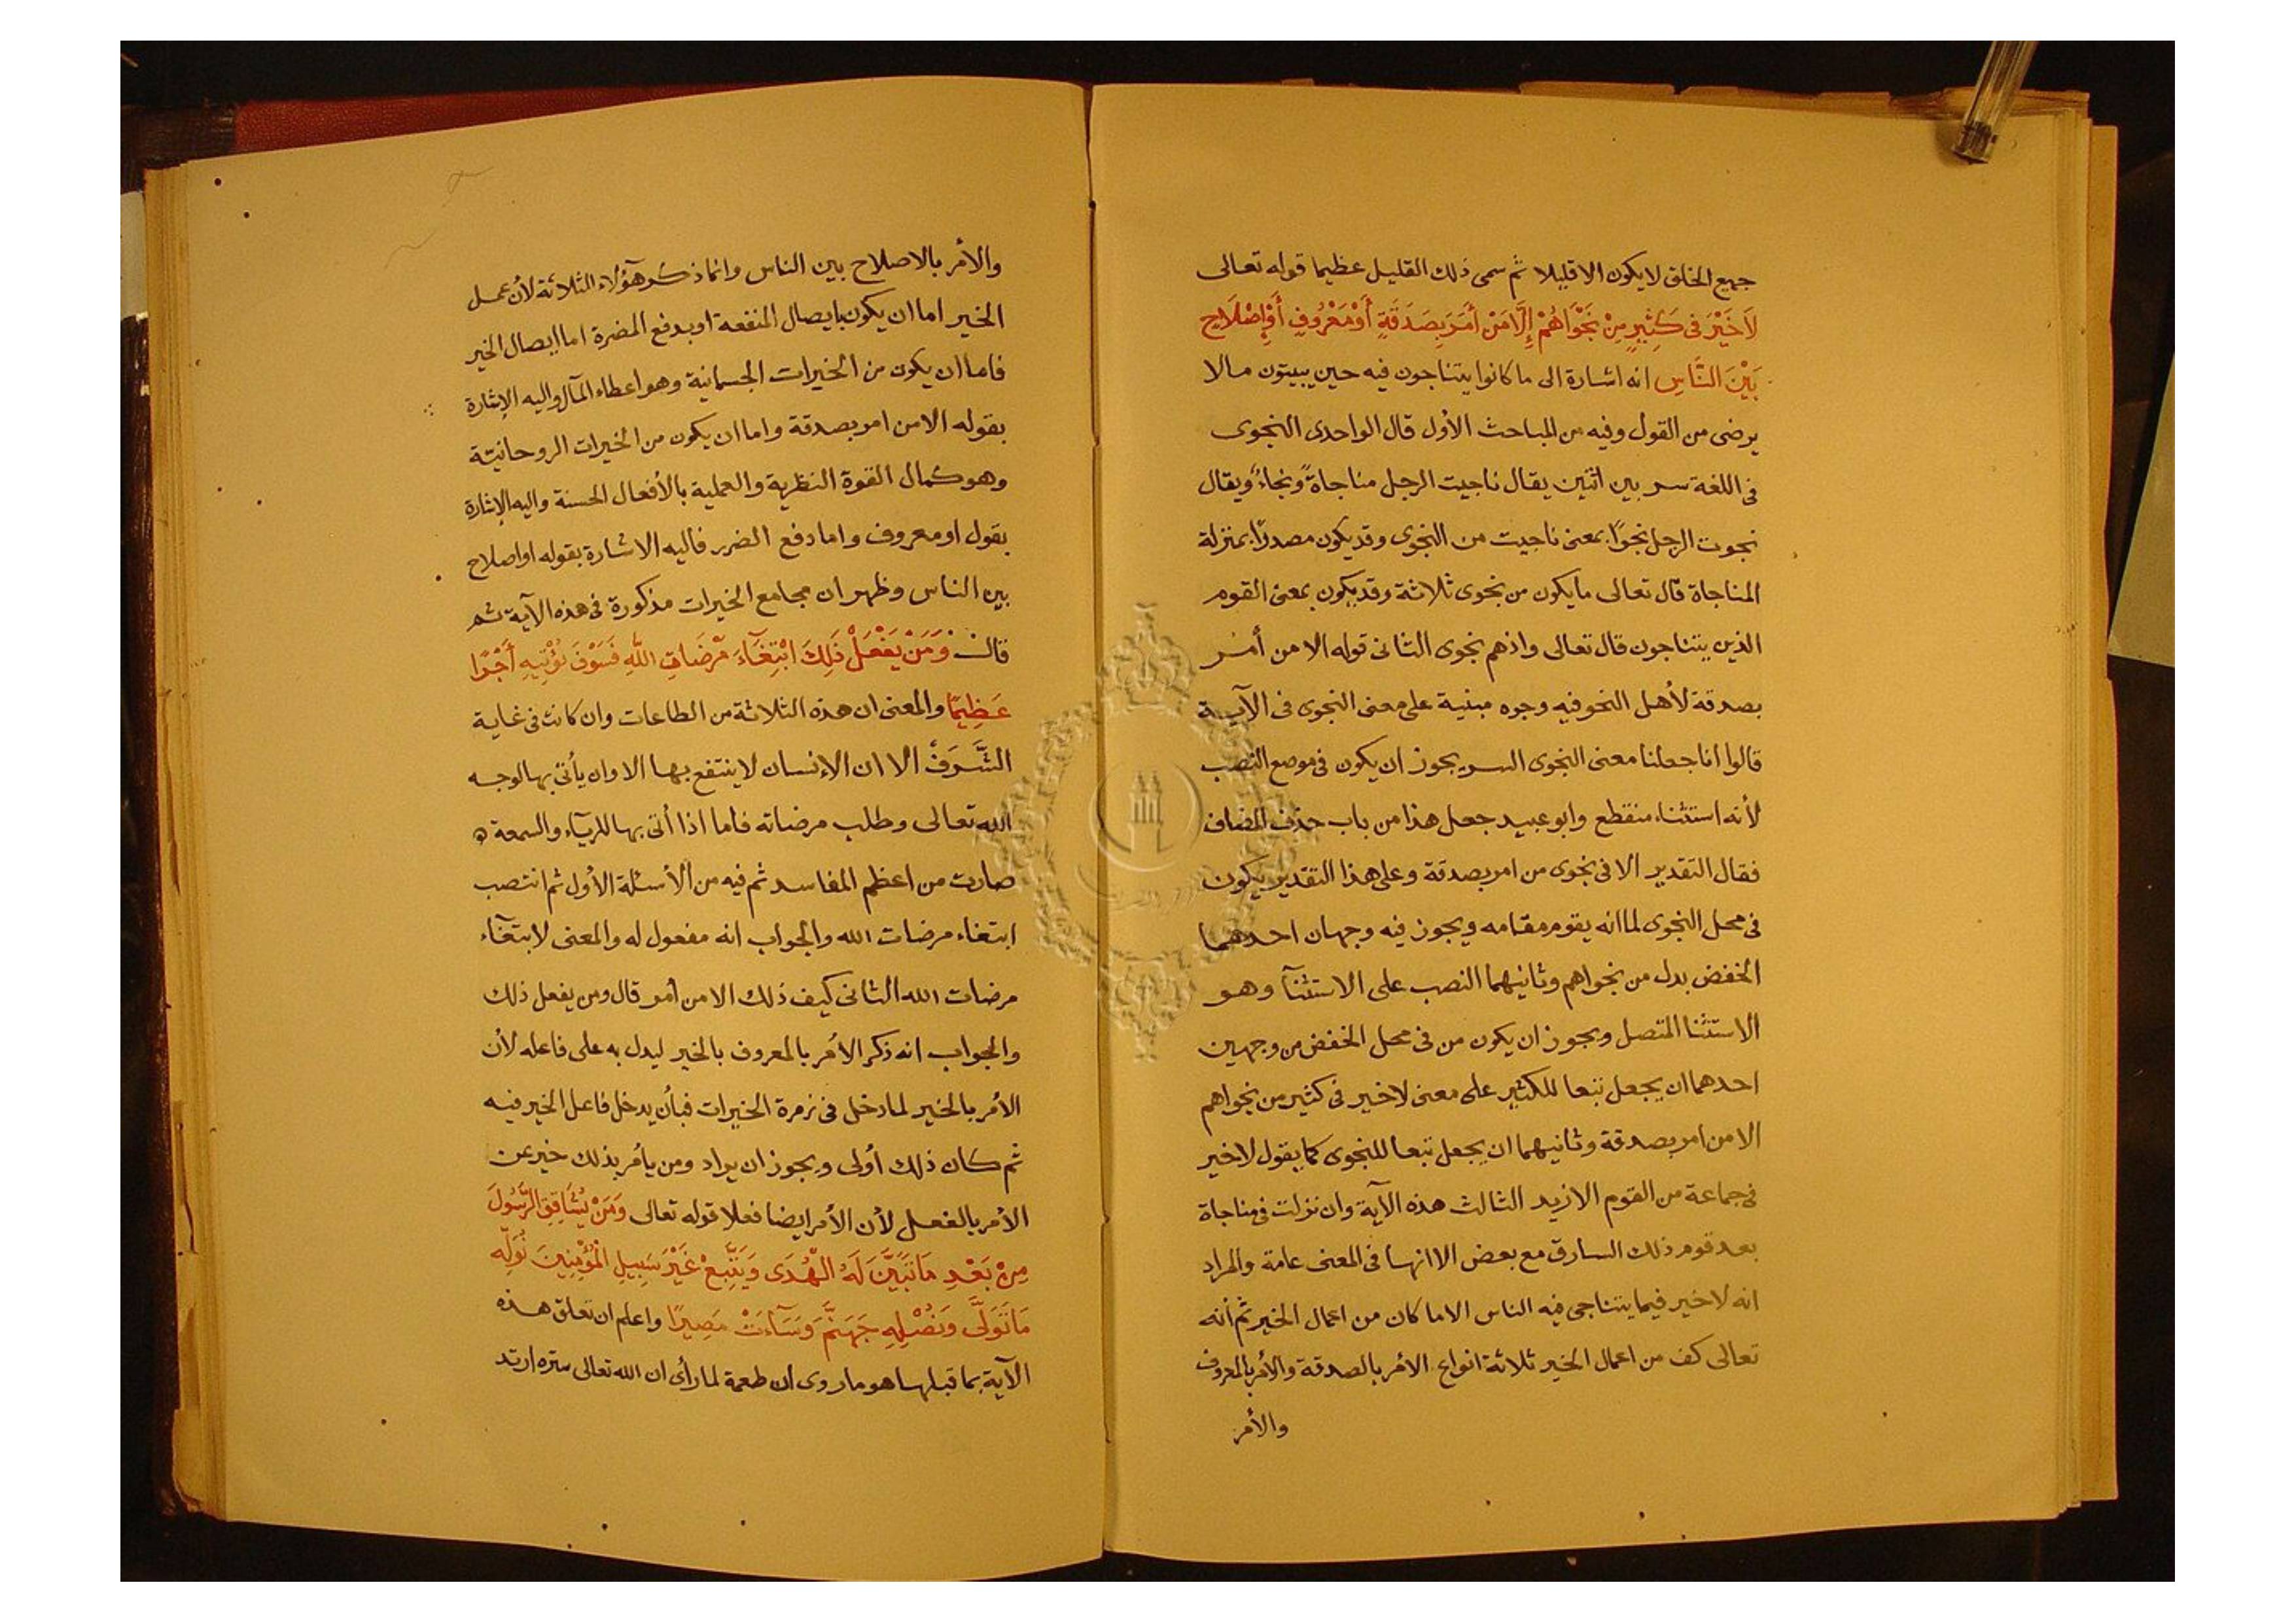 جميع الخلق لا يكون الا قليلا ثم سمى ذلك القليل عظيما قوله تعالى
لَا خَيْرَ فى كَثِيرٍ مِنْ نَجْوَاهُمْ إِلَّا مَنْ أَمَرَ بِصَدَقَةٍ أَوْ مَعْرُوفٍ أَوْ إِصْلَاحٍ
بَيْنَ النَّاسِ انه اشارة الى ما كانوا يتناجون فيه حين يبيتون مالا
يرضى من القول وفيه من المباحث الأول قال الواحدى النجوى
فى اللغة سر بين اثنين يقال ناجيت الرجل مناجاةً ونجاءً ويقال
نجوت الرجل نجوًا بمعنى ناجيت من النجوى وقد يكون مصدرًا بمنزلة
المناجاة قال تعالى ما يكون من نجوى ثلاثة وقد يكون بمعنى القوم
الذين يتناجون قال تعالى واذهم نجوى الثانى قوله الا من أمر
بصدقة لأهل النحو فيه وجوه مبنية على معنى النجوى فى الآية
قالوا انا جعلنا معنى النجوى السر يجوز ان يكون فى موضع النصب
لأنه استثناء منقطع وابو عبيد جعل هذا من باب حذف المضاف
فقال التقدير الا فى نجوى من امر بصدقة وعلى هذا التقدير يكون
فى محل النجوى لما انه يقوم مقامه ويجوز فيه وجهان احدهما
الخفض بدل من نجواهم وثانيهما النصب على الاستثنآ وهو
الاستثنا المتصل ويجوز ان يكون من فى محل الخفض من وجهين
احدهما ان يجعل تبعا للكثير على معنى لا خير فى كثير من نجواهم
الا من امر بصدقة وثانيهما ان يجعل تبعا للنجوى كما يقول لا خير
فى جماعة من القوم الا زيد الثالث هذه الآية وان نزلت فى مناجاة
بعد قوم ذلك السارق مع بعض الا انها فى المعنى عامة والمراد
انه لا خير فيما يتناجى فيه الناس الا ما كان من اعمال الخير ثم أنه
تعالى كف من اعمال الخير ثلاثة انواع الأمر بالصدقة والأمر بالمعروف
والأمر
والأمر بالاصلاح بين الناس وانما ذكر هؤلاء الثلاثة لأن عمل
الخير اما ان يكون بايصال المنفعة او بدفع المضرة اما ايصال الخير
فاما ان يكون من الخيرات الجسمانية وهو اعطاء المآل واليه الإشارة
بقوله الا من امر بصدقة واما ان يكون من الخيرات الروحانيّة
وهو كمال القوة النظرية والعملية بالأفعال الحسنة واليه الإشارة
بقول او معروف واما دفع الضرر فاليه الاشارة بقوله او اصلاح
بين الناس وظهر ان مجامع الخيرات مذكورة فى هذه الآية ثم
قال وَمَنْ يَفْعَلْ ذَلِكَ ابْتِغَآءَ مَرْضَاتِ اللَّهِ فَسَوْفَ نُؤْتِيهِ أَجْرًا
عَظِيمًا والمعنى ان هذه الثلاثة من الطاعات وان كانت فى غاية
الشَّرَفْ الا ان الإنسان لا ينتفع بها الا وان يأتى بها لوجه
الله تعالى وطلب مرضاته فاما اذا أتى بها للريآء والسمعة
صارت من اعظم المفاسد ثم فيه من الأسئلة الأول ثم انتصب
ابتغاء مرضات الله والجواب انه مفعول له والمعنى لابتغآء
مرضات الله الثانى كيف ذلك الا من أمر قال ومن يفعل ذلك
والجواب انه ذكر الأمر بالمعروف بالخير ليدل به على فاعله لأن
الأمر بالخير لما دخل فى زمرة الخيرات فبأن يدخل فاعل الخير فيه
ثم كان ذلك أولى ويجوز ان يراد ومن يأمر بذلك خير عن
الأمر بالفعل لأن الأمر ايضا فعلا قوله تعالى وَمَنْ يُشَاقِقِ الرَّسُولَ
مِنْ بَعْدِ مَا تَبَيَّنَ لَهُ الْهُدَى وَيَتَّبِعْ غَيْرَ سَبِيلِ الْمُؤْمِنِينَ نُوَلِّهِ
مَا تَوَلَّى وَنُصْلِهِ جَهَنَّمَ وَسَآءَتْ مَصِيرًا واعلم ان تعلق هذه
الآية بما قبلها هو ما روى ان طعمة لما رأى ان الله تعالى ستره ارتد